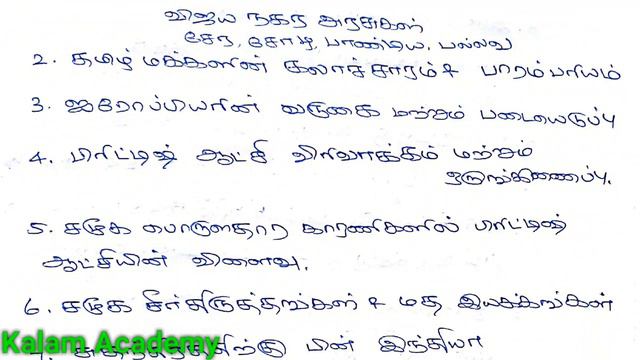 விஜய நகர அரசுகள்
சேர, சோழ, பாண்டிய, பல்லவ
2. தமிழ் மக்களின் கலாச்சாரம் & பாரம்பரியம்
3. ஐரோப்பியரின் வருகை மற்றும் படையெடுப்பு
4. பிரிட்டிஷ் ஆட்சி விரிவாக்கம் மற்றும்
ஒருங்கிணைப்பு.
5. சமூக பொருளாதார காரணிகளில் பிரிட்டிஷ்
ஆட்சியின் விளைவு.
6. சமூக சீர்திருத்தங்கள் & மத இயக்கங்கள்
பின் இந்தியா
Kalam Academy